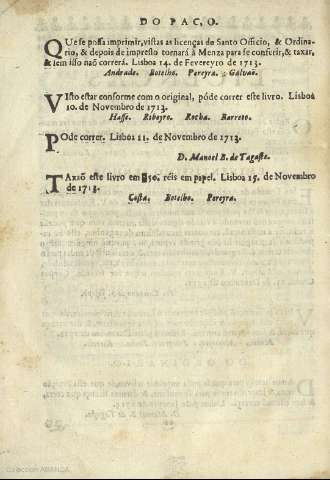 DO PAÇO.
QUe se possa imprimir, vistas as licenças do Santo Officio, & Ordina-
rio, & depois de impresso tornará à Menza para se conferir, & taxar,
& sem isso naõ correrá. Lisboa 14. de Fevereyro de 1713.
Andrade. Botelho. Pereyra. Galvaõ.
VIsto estar conforme com o original, póde correr este livro. Lisboa
10. de Novembro de 1713.
Hasse. Ribeyro. Rocha. Barreto.
POde correr. Lisboa 11. de Novembro de 1713.
D. Manoel B. de Tagaste.
TAxaõ este livro em 350. réis em papel. Lisboa 15. de Novembro
de 1713.
Costa. Botelho. Pereyra.
Colección ABANCA